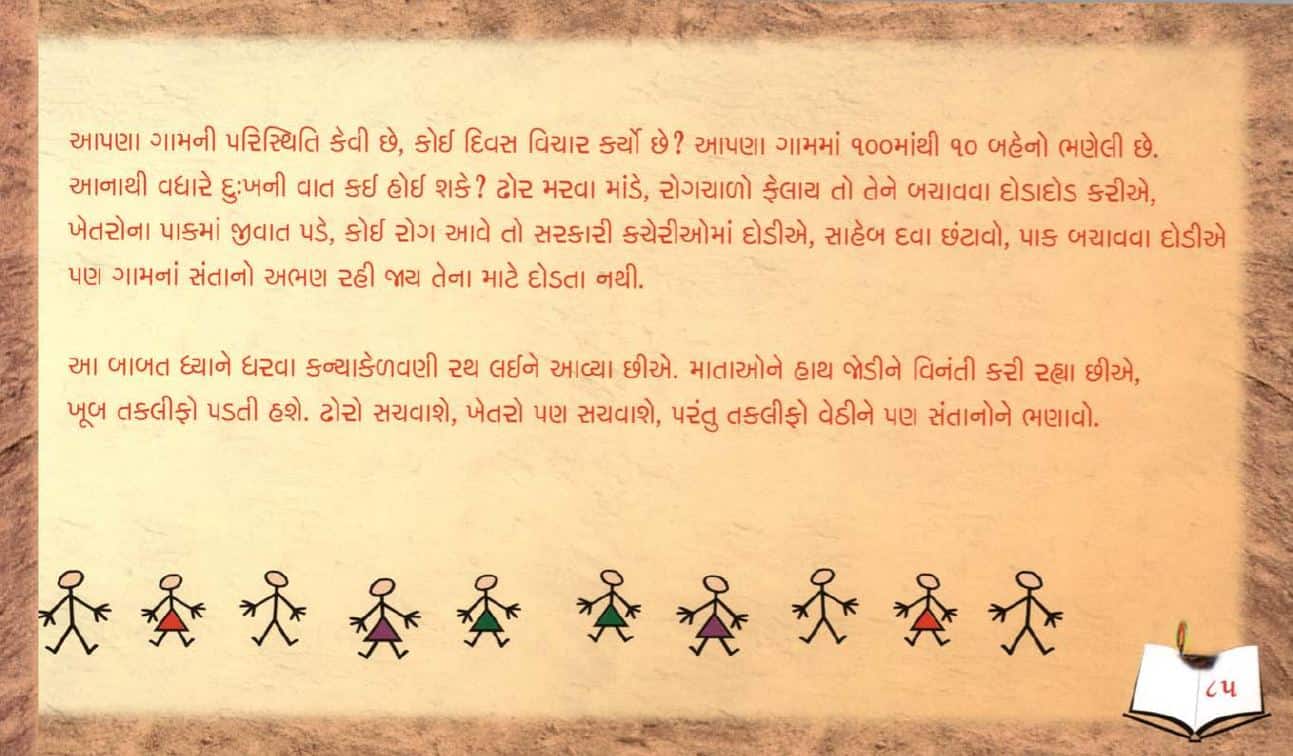 આપણા ગામની પરિસ્થિતિ કેવી છે, કોઈ દિવસ વિચાર કર્યો છે? આપણા ગામમાં ૧૦૦માંથી ૧૦ બહેનો ભણેલી છે.
આનાથી વધારે દુઃખની વાત કઈ હોઈ શકે? ઢોર મરવા માંડે, રોગચાળો ફેલાય તો તેને બચાવવા દોડાદોડ કરીએ,
ખેતરોના પાકમાં જીવાત પડે, કોઈ રોગ આવે તો સરકારી કચેરીઓમાં દોડીએ, સાહેબ દવા છંટાવો, પાક બચાવવા દોડીએ
પણ ગામનાં સંતાનો અભણ રહી જાય તેના માટે દોડતા નથી.
આ બાબત ધ્યાને ધરવા કન્યાકેળવણી રથ લઈને આવ્યા છીએ. માતાઓને હાથ જોડીને વિનંતી કરી રહ્યા છીએ,
ખૂબ તકલીફો પડતી હશે. ઢોરો સચવાશે, ખેતરો પણ સચવાશે, પરંતુ તકલીફો વેઠીને પણ સંતાનોને ભણાવો.
૮૫